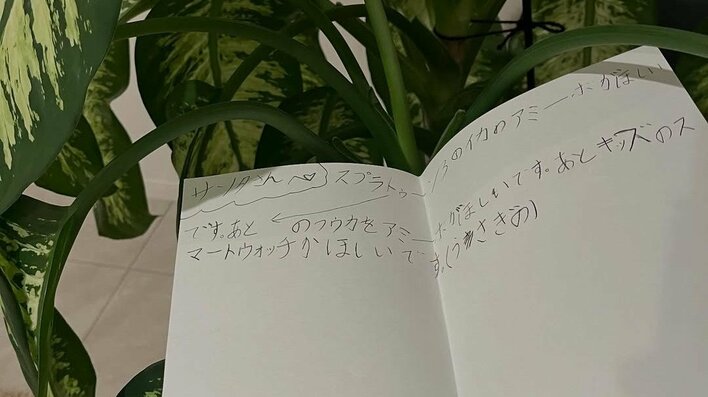 サンタさんへ♡ スプラトゥーン3のイカのアミーボがほしい
です。あと ← のフウカをアミーボがほしいです。あとキッズのス
マートウォッチがほしいです。(うさぎの)